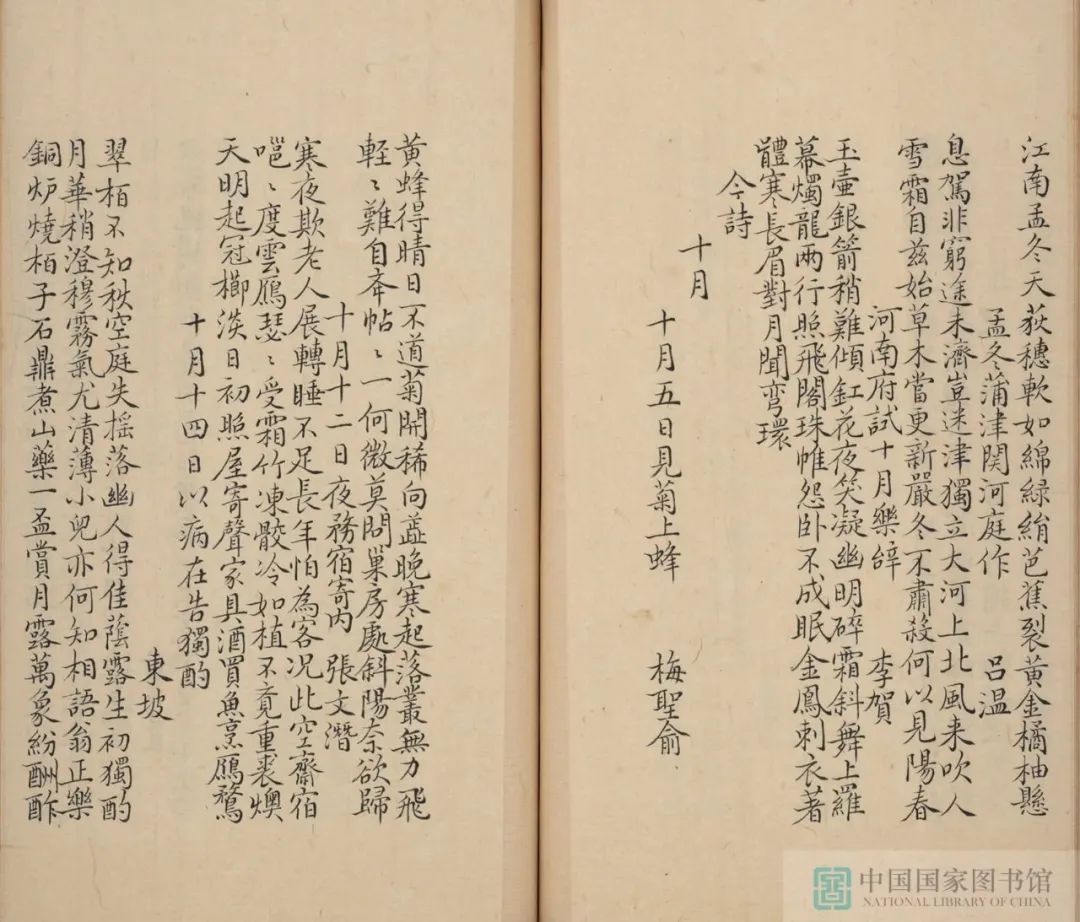 江南孟冬天荻穗軟如綿緑絹芭蕉裂黄金橘柚懸
孟冬蒲津関河庭作 吕温
息駕非窮途未濟豈迷津獨立大河上北風来吹人
雪霜自兹始草木當更新嚴冬不肅殺何以見陽春
河南府試十月樂辝 李賀
玉壷銀箭稍難傾釭花夜笑凝幽明碎霜斜舞上羅
幕燭龍兩行照飛閣珠帷怨卧不成眠金鳳刺衣著
體寒長眉對月鬭彎環
今詩
十月
十月五日見菊上蜂 梅聖俞
黄蜂得晴日不道菊開稀向蘂晚寒起落叢無力飛
輊〻難自奉帖〻一何微莫問巢房處斜陽奈欲歸
十月十二日夜務宿寄内 張文潛
寒夜欺老人展轉睡不足長年怕為客况此空齋宿
嗈〻度雲鴈瑟〻受霜竹凍骰冷如植不竟重裘燠
天明起冠櫛淡日初照屋寄聲家具酒買魚烹鴈鶩
十月十四日以病在告獨酌
東坡
翠栢不知秋空庭失揺落幽人得佳蔭露生初獨酌
月華稍澄穆霧氣尤清薄小兒亦何知相語翁正樂
銅炉燒栢子石鼎煮山藥一盃賞月露萬象紛酬酢
中国国家图书馆
NATIONAL LIBRARY OF CHINA